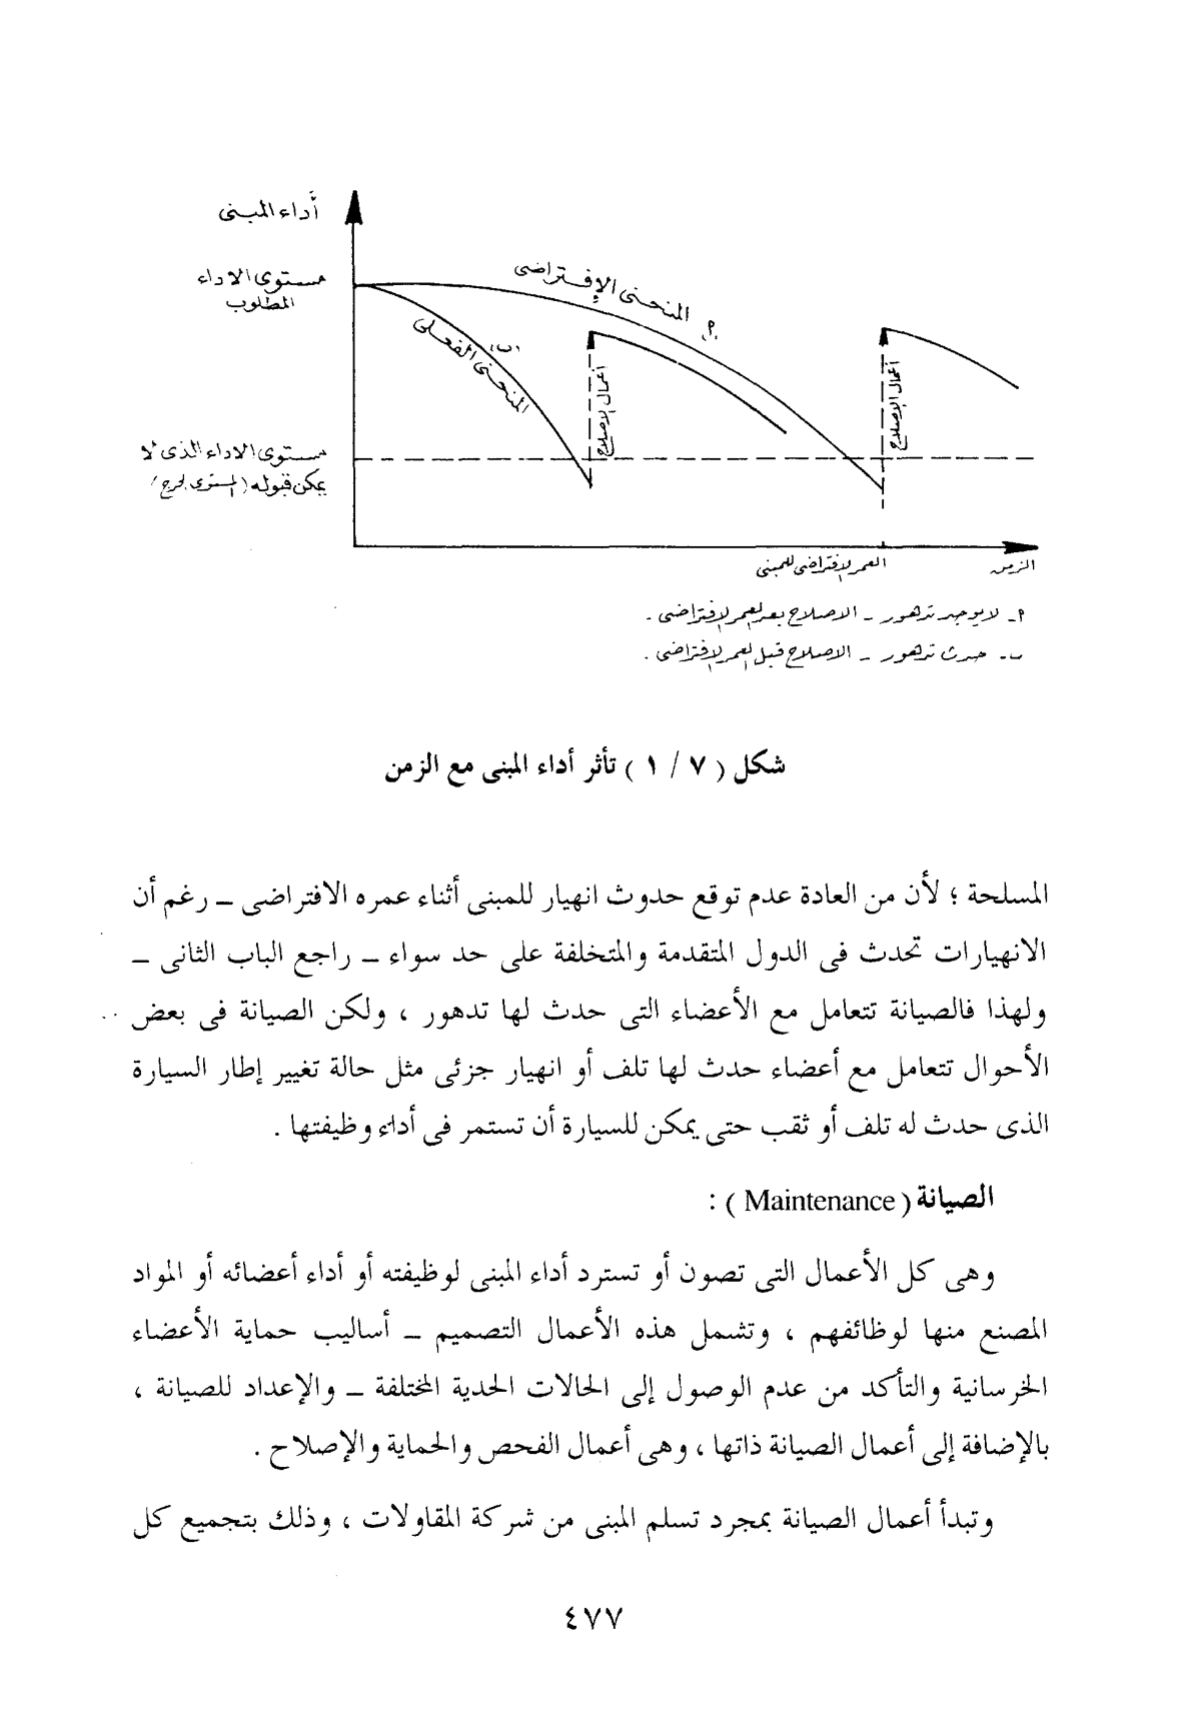 أداء المبنى
مستوى الاداء
المطلوب
المنحنى الإفتراضى
المنحنى الفعلى
(ب)
أعمال الإصلاح
أعمال الإصلاح
مستوى الاداء الذى لا
يمكن قبوله (المستوى الحرج)
العمر الإفتراضى للمبنى
الزمن
أ - لا يوجد تدهور - الاصلاح بعد العمر الإفتراضى .
ب - حدث تدهور - الاصلاح قبل العمر الإفتراضى .
شكل ( ٧ / ١ ) تأثر أداء المبنى مع الزمن
المسلحة ؛ لأن من العادة عدم توقع حدوث انهيار للمبنى أثناء عمره الافتراضى – رغم أن
الانهيارات تحدث فى الدول المتقدمة والمتخلفة على حد سواء – راجع الباب الثانى –
ولهذا فالصيانة تتعامل مع الأعضاء التى حدث لها تدهور ، ولكن الصيانة فى بعض
الأحوال تتعامل مع أعضاء حدث لها تلف أو انهيار جزئى مثل حالة تغيير إطار السيارة
الذى حدث له تلف أو ثقب حتى يمكن للسيارة أن تستمر فى أداء وظيفتها .
الصيانة ( Maintenance ) :
وهى كل الأعمال التى تصون أو تسترد أداء المبنى لوظيفته أو أداء أعضائه أو المواد
المصنع منها لوظائفهم ، وتشمل هذه الأعمال التصميم – أساليب حماية الأعضاء
الخرسانية والتأكد من عدم الوصول إلى الحالات الحدية المختلفة – والإعداد للصيانة ،
بالإضافة إلى أعمال الصيانة ذاتها ، وهى أعمال الفحص والحماية والإصلاح .
وتبدأ أعمال الصيانة بمجرد تسلم المبنى من شركة المقاولات ، وذلك بتجميع كل
٤٧٧